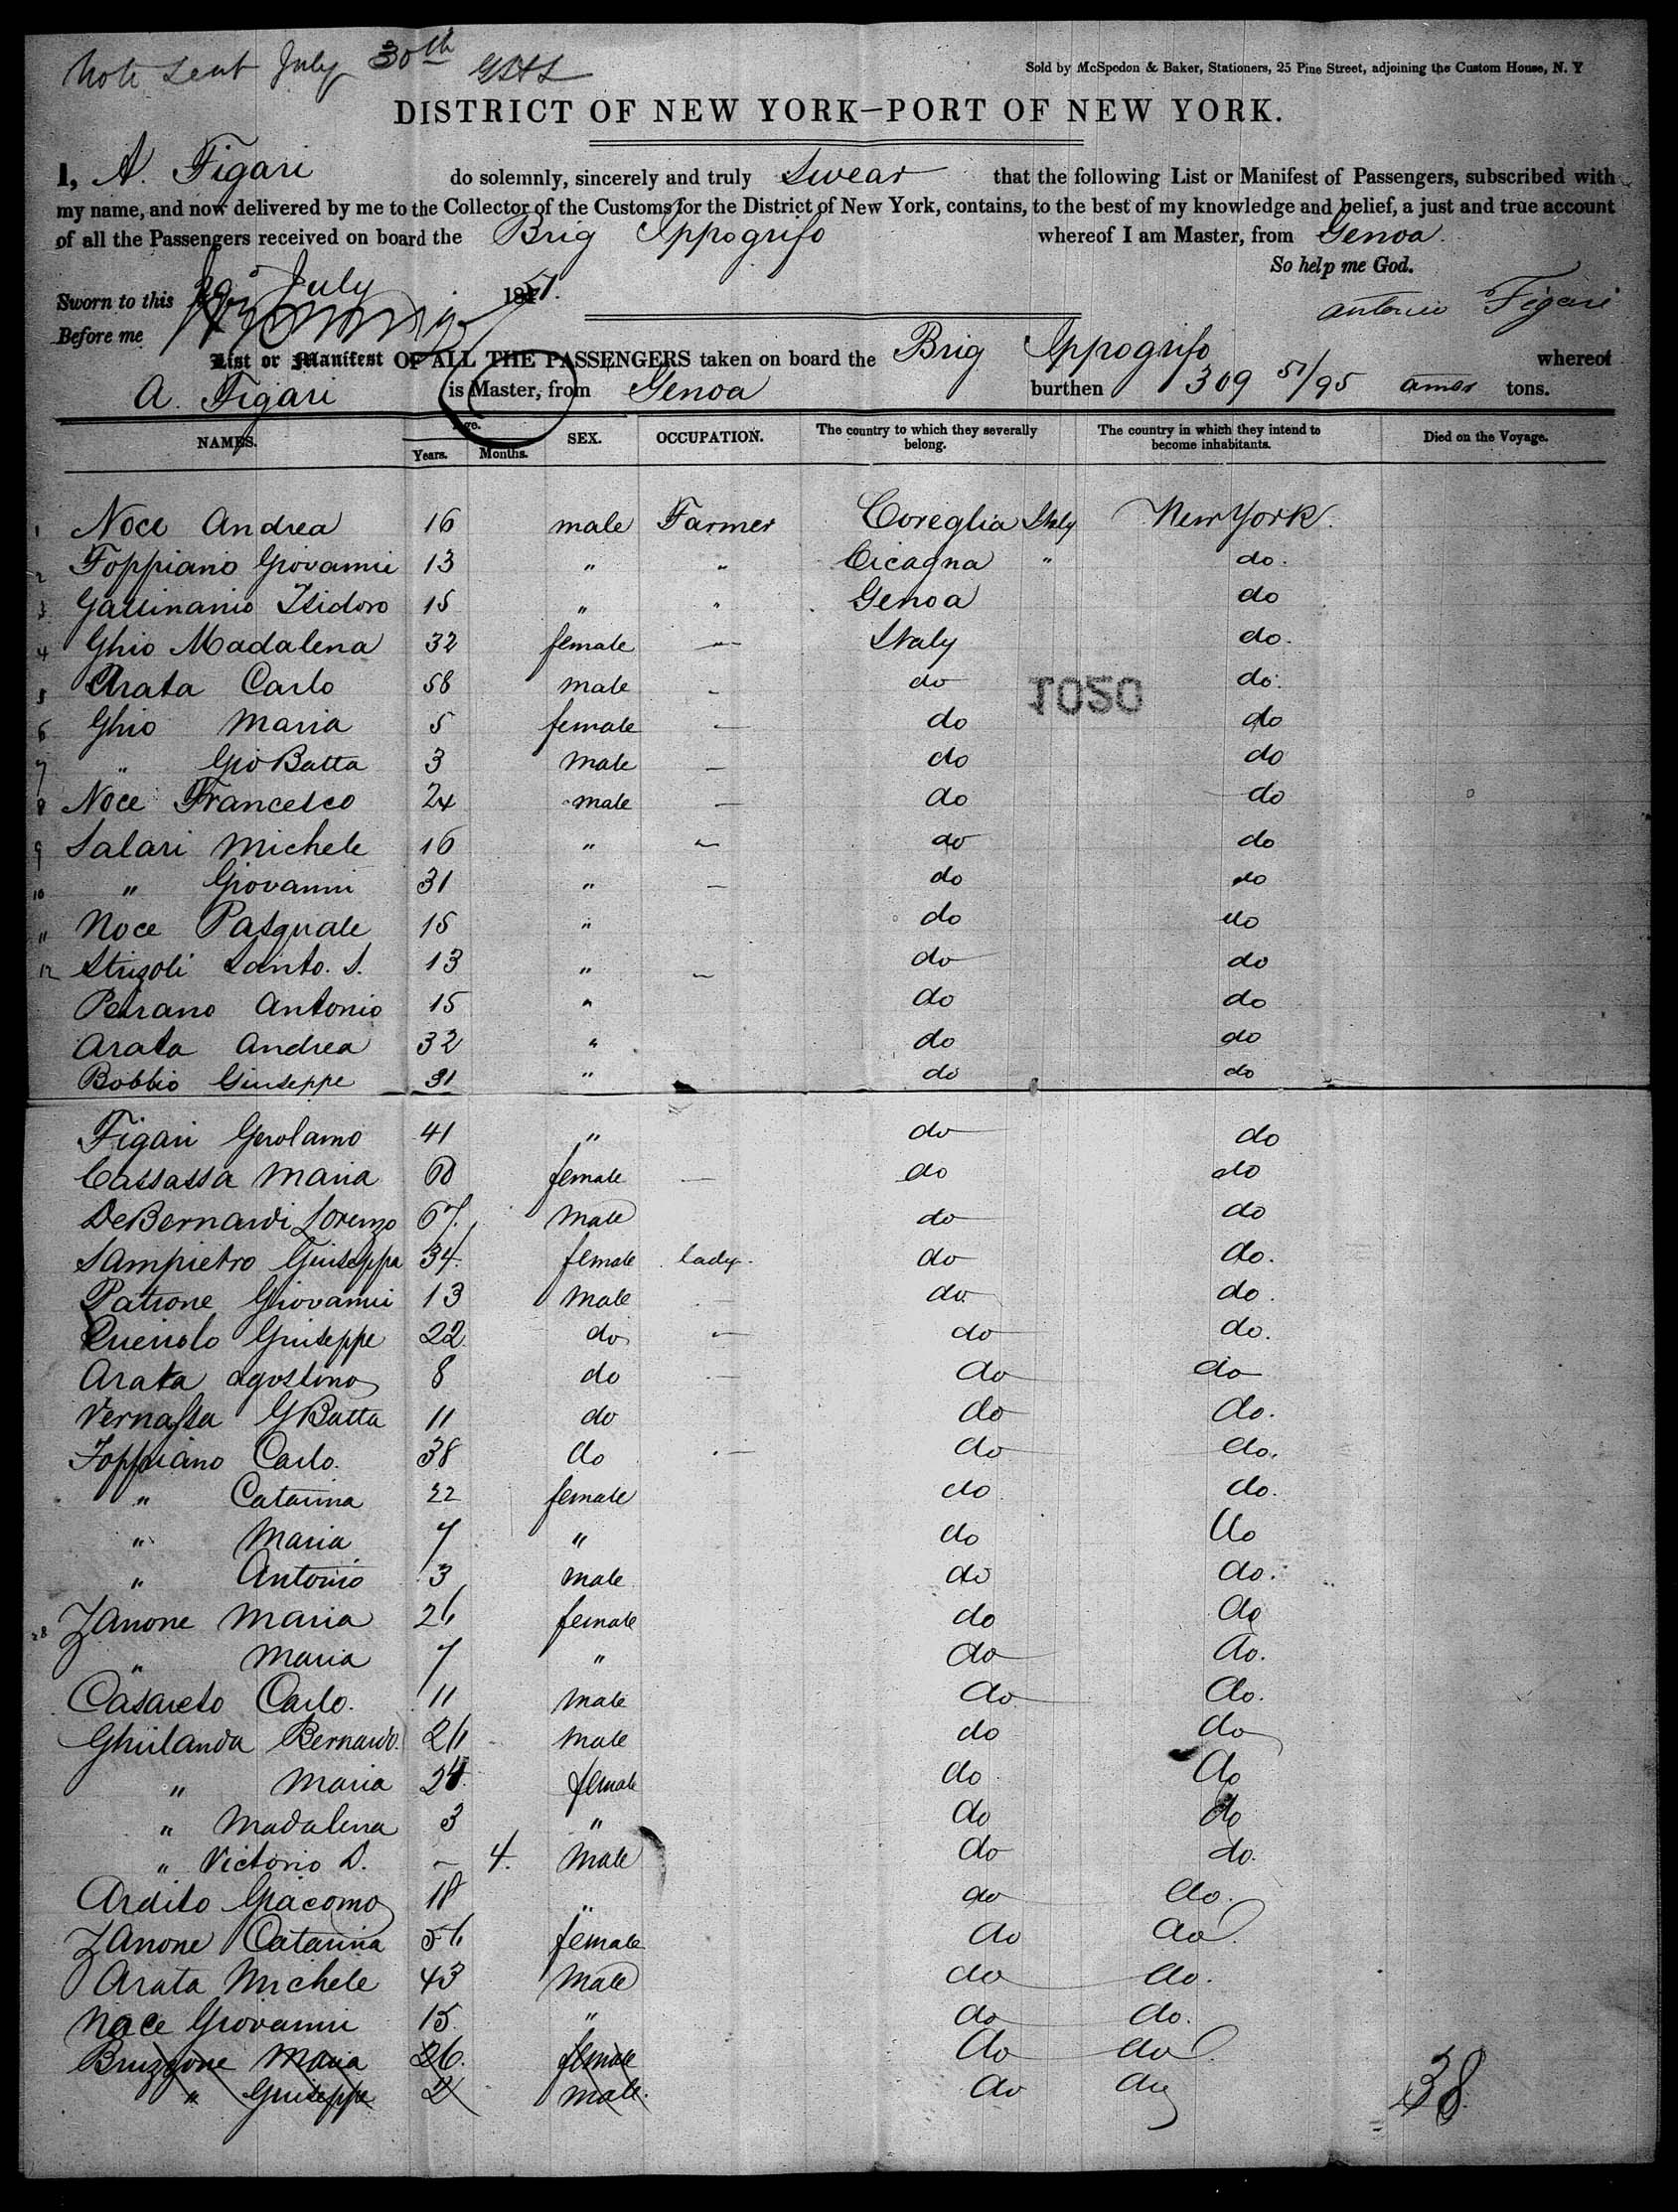 Note sent July 30th
Sold by McSpedon & Baker, Stationers, 25 Pine Street, adjoining the Custom House, N. Y
DISTRICT OF NEW YORK–PORT OF NEW YORK.
I, A. Figari do solemnly, sincerely and truly Swear that the following List or Manifest of Passengers, subscribed with
my name, and now delivered by me to the Collector of the Customs for the District of New York, contains, to the best of my knowledge and belief, a just and true account
of all the Passengers received on board the Brig Ippogrifo whereof I am Master, from Genoa.
So help me God.
Sworn to this July 18
Before me Antonio Figari
List or Manifest OF ALL THE PASSENGERS taken on board the Brig Ippogrifo whereof
A. Figari is Master, from Genoa burthen 309 51/95 tons.
NAMES. Age. Years. Months. SEX. OCCUPATION. The country to which they severally belong. The country in which they intend to become inhabitants. Died on the Voyage.
1 Noce Andrea 16 male Farmer Coreglia Italy New York.
2 Foppiano Giovanni 13 " " Cicagna " do.
3 Isidoro 15 " " Genoa do
4 Ghio Madalena 32 female — Italy do.
5 Arata Carlo 58 male - do do.
1020
6 Ghio Maria 5 female — do do
7 " Gio Batta 3 male — do do
8 Noce Francesco 24 male — do do
9 Salari Michele 16 " — do do
10 " Giovanni 31 " — do do
11 Noce Pasquale 15 " do do
12 Santo. S. 13 " — do do
Petrano Antonio 15 " do do
Arata Andrea 32 " do do
Bobbio Giuseppe 31 " do do
Figari Gerolamo 41 " do do
Cassassa Maria 60 female — do do
DeBernardi Lorenzo 67. male do do
Sampietro Giuseppa 34. female lady. do do.
Patrone Giovanni 13 male — do. do.
Giuseppe 22. do — do do.
Arata Agostino 8 do — do do
G Batta 11 do do do.
Foppiano Carlo. 38 do — do do.
" Catarina 22 female do do.
" Maria 7 " do do
" Antonio 3 male do do.
28 Zanone Maria 26 female do do
" Maria 7 " do do.
Casareto Carlo. 11 male do do.
Bernardo. 26 male do do
" Maria 24. female do do
" Madalena 3 " do do
" Victorio D. — 4. male do do.
Ardito Giacomo 18 " do do.
Zanone Catarina 56 female do do.
Arata Michele 43 male do do.
Noce Giovanni 15. " do do.
Bruzzone Maria 26. female do do.
" Giuseppe 2 male. do do
38